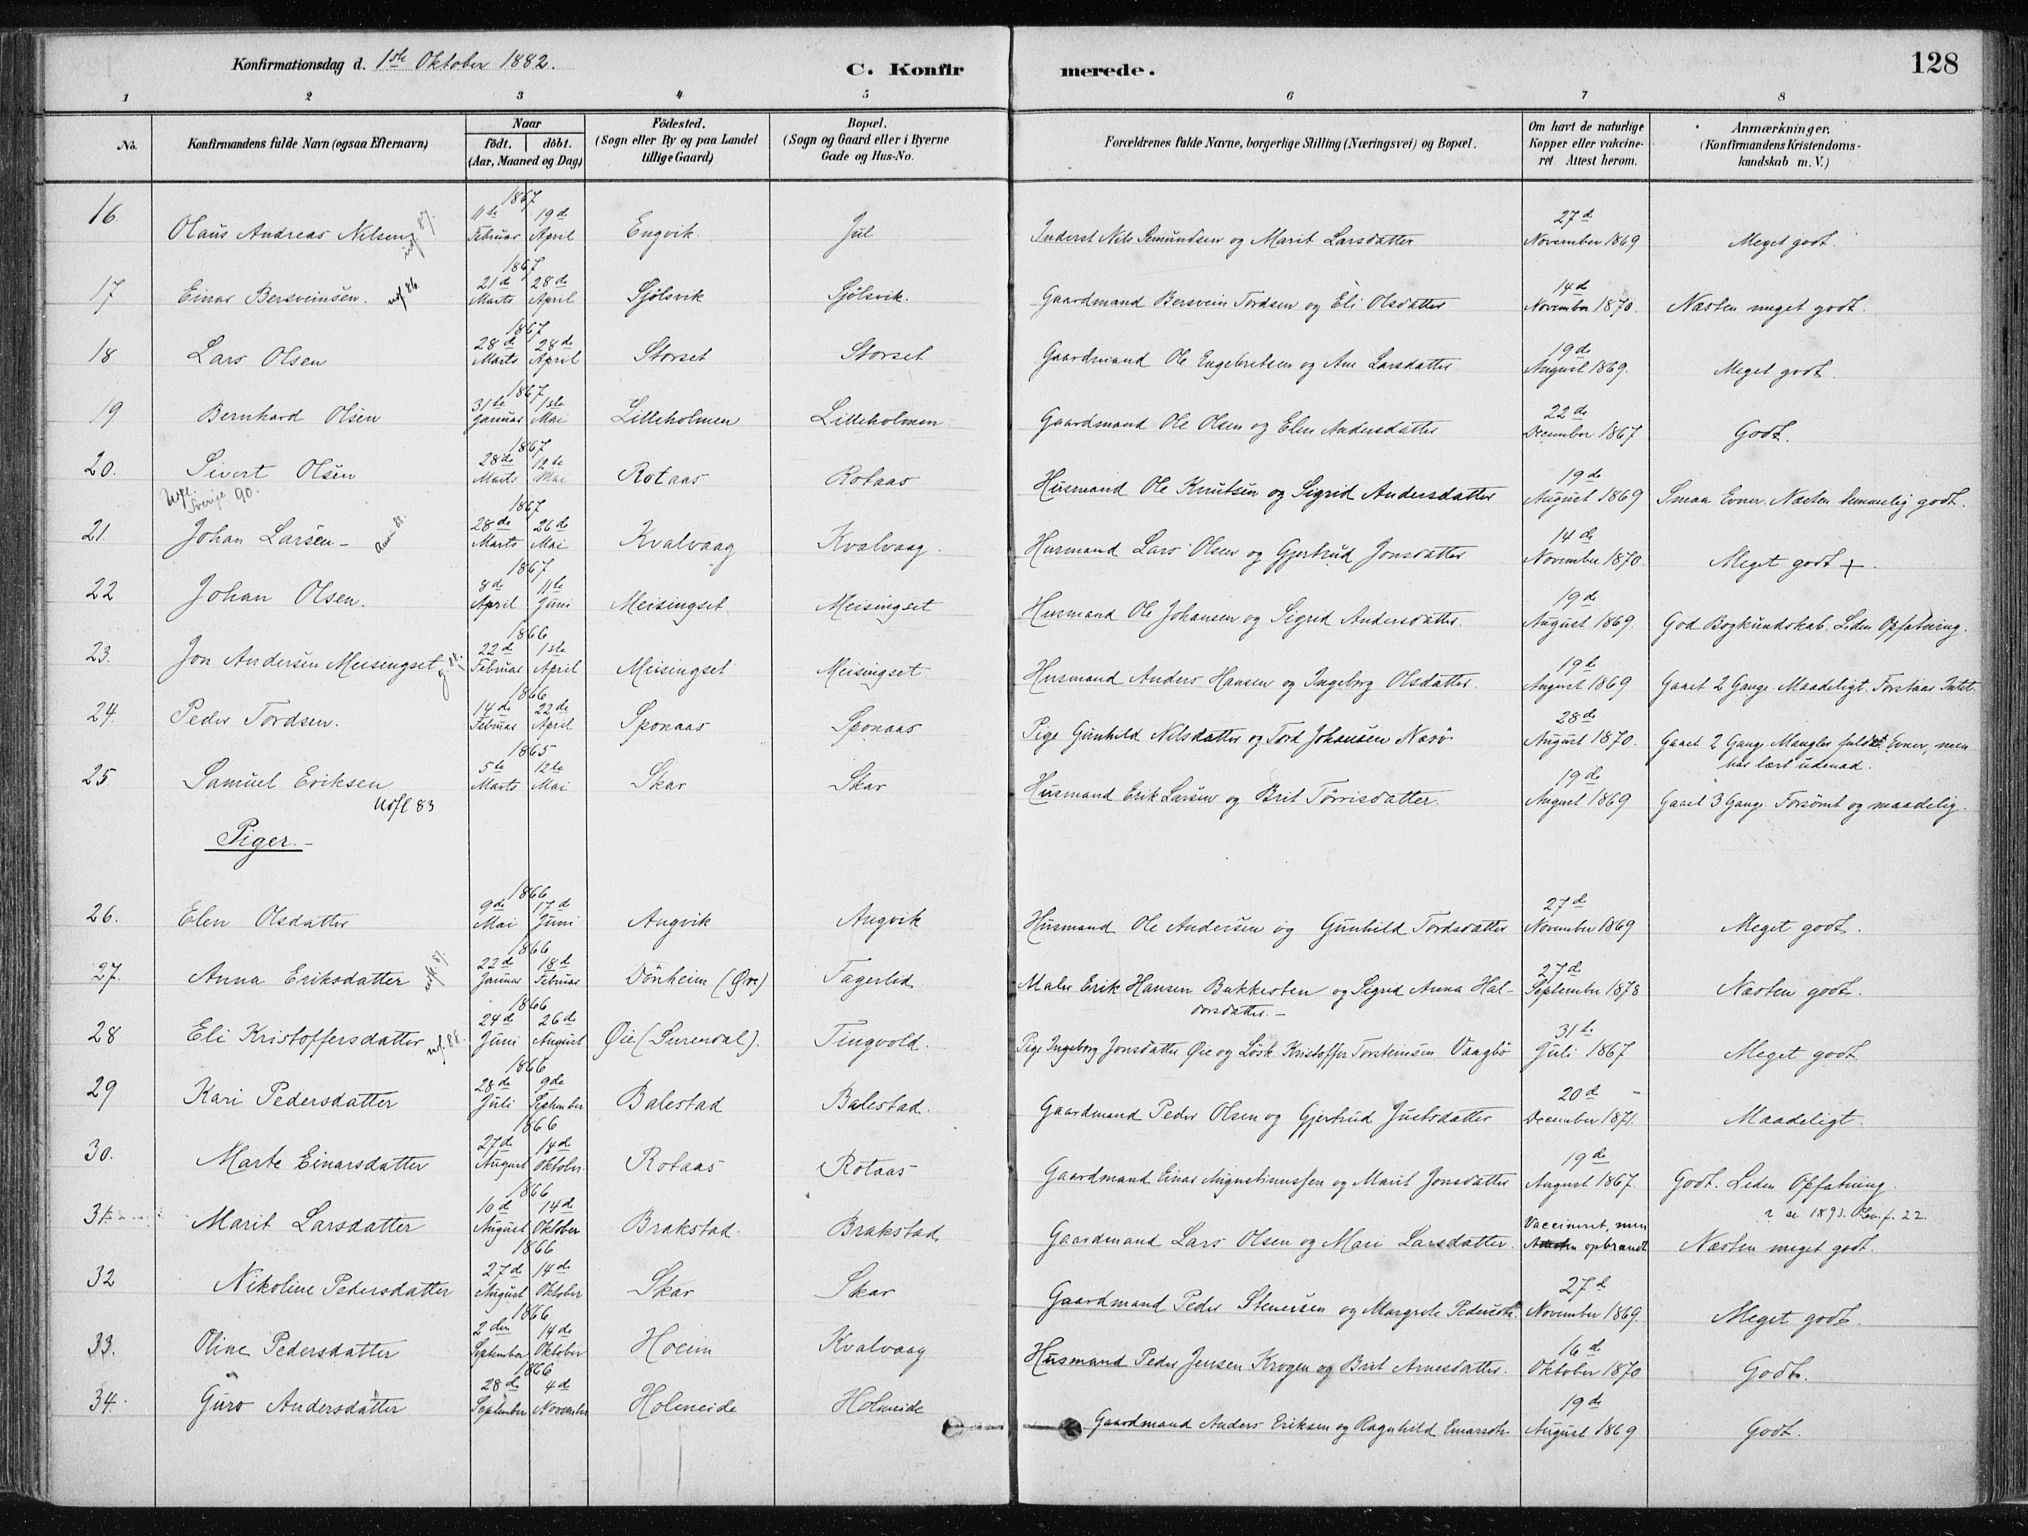 Konfirmationsdag d. 1ste Oktober 1882.
C. Konfir merede.
128
1 2 3 4 5 6 7 8
No.
Konfirmandens fulde Navn (ogsaa Efternavn)
Naar
født. døbt.
(Aar, Maaned og Dag)
Fødested.
(Sogn eller By og paa Landet
tillige Gaard)
Bopæl.
(Sogn og Gaard eller i Byerne
Gade og Hus-No.
Forældrenes fulde Navne, borgerlige Stilling (Næringsvei) og Bopæl.
Om havt de naturlige
Kopper eller vakcine-
ret Attest herom.
Anmærkninger.
(Konfirmandens Kristendoms-
kundskab m. V.)
1867
16 Olaus Andreas Nilsen 11te Februar 19de April Engvik Jul Inderst Nils Semundsen og Marit Larsdatter 27de November 1869 Meget godt.
1867
17 Einar Bersveinsen. uf. 86. 21de Marts 28de April Sjølsvik Sjølsvik. Gaardmand Bersvein Tordsen og Eli Olsdatter 14de November 1870. Næsten meget godt.
1867
18 Lars Olsen 28de Marts 28de April Storset Storset Gaardmand Ole Engebretsen og Ane Larsdatter 19de August 1869. Meget godt.
1867
19 Bernhard Olsen 31te Januar 1ste Mai Lilleholmen Lilleholmen Gaardmand Ole Olsen og Elen Andersdatter 22de December 1867 Godt.
1867
20. Sivert Olsen 28de Marts 12te Mai Rotaas Rotaas Husmand Ole Knutsen og Sigrid Andersdatter 19de August 1869 Smaa Evner. Næsten temmelig godt.
Sverige 90.
1867
21. Johan Larsen - 28de Marts 26de Mai Kvalvaag Kvalvaag. Husmand Lars Olsen og Gjertrud Jonsdatter 14de November 1870. Meget godt +.
1867
22 Johan Olsen. 8de April 11te Juni Meisingset Meisingset Husmand Ole Johansen og Sigrid Andersdatter. 19de August 1869. God Bogkundskab. Liden Opfatning.
1866
23. Jon Andersen Meisingset 22de Februar 1ste April Meisingset Meisingset Husmand Anders Hansen og Ingeborg Olsdatter. 19de August 1869 Gaaet 2 Gange. Maadeligt. Forstaar Intet.
1866
24. Peder Tordsen. 14de Februar 22de April Sponaas Sponaas Pige Gunhild Nilsdatter og Tord Johansen Næsø 28de August 1870. Gaaet 2 Gange. Mangler fuldst. Evner, men
har lært udenad.
1865
25 Samuel Eriksen 5te Marts 12te Mai Skar Skar Husmand Erik Larsen og Brit Tørrisdatter. 19de August 1869 Gaaet 3 Gange. Forsømt og maadelig.
Utfl 83
Piger. -
1866
26. Elen Olsdatter 9de Mai 17de Juni Angvik Angvik Husmand Ole Andersen og Gunhild Tordsdatter 27de November 1869 Meget godt.
1866
27. Anna Eriksdatter 22de Januar 18de Februar Dønheim (Øre) Tagerlid Maler Erik Hansen Bakkesten og Sigrid Anna Hal-
dorsdatter. - 27de September 1878 Næsten godt.
1866
28 Eli Kristoffersdatter uf. 88. 24de Juni 26de August Øie (Surendal). Tingvold. Pige Ingeborg Jonsdatter Øie og Løsk. Kristoffer Torsteinsen Vaagbø 31te Juli 1867 Meget godt
1866
29 Kari Pedersdatter 28de Juli 9de September Balestad Balestad. Gaardmand Peder Olsen og Gjertrud Justsdatter 20de December 1871. Maadeligt.
1866
30. Marte Einarsdatter 27de August 14de Oktober Rotaas Rotaas Gaardmand Einar Augustinussen og Marit Jonsdatter 19de August 1867. Godt. Liden Opfatning.
1866
31 Marit Larsdatter 10de August 14de Oktober Brakstad. Brakstad. Gaardmand Lars Olsen og Mari Larsdatter. Vaccineret, men
Attesten opbrandt Næsten meget godt.
1866
32 Nikoline Pedersdatter 27de August 14de Oktober Skar Skar Gaardmand Peder Stenersen og Margrete Pedersdtr. 27de November 1869. Meget godt.
1866
33. Oline Pedersdatter 2den September 14de Oktober Hoeim Kvalvaag Husmand Peder Jensen Krogen og Brit Arnesdatter. 16de Oktober 1870 Godt.
1866
34. Guro Andersdatter 28de September 4de November Holmeide Holmeide Gaardmand Anders Eriksen og Ragnhild Einarsdtr 19de August 1869 Godt.